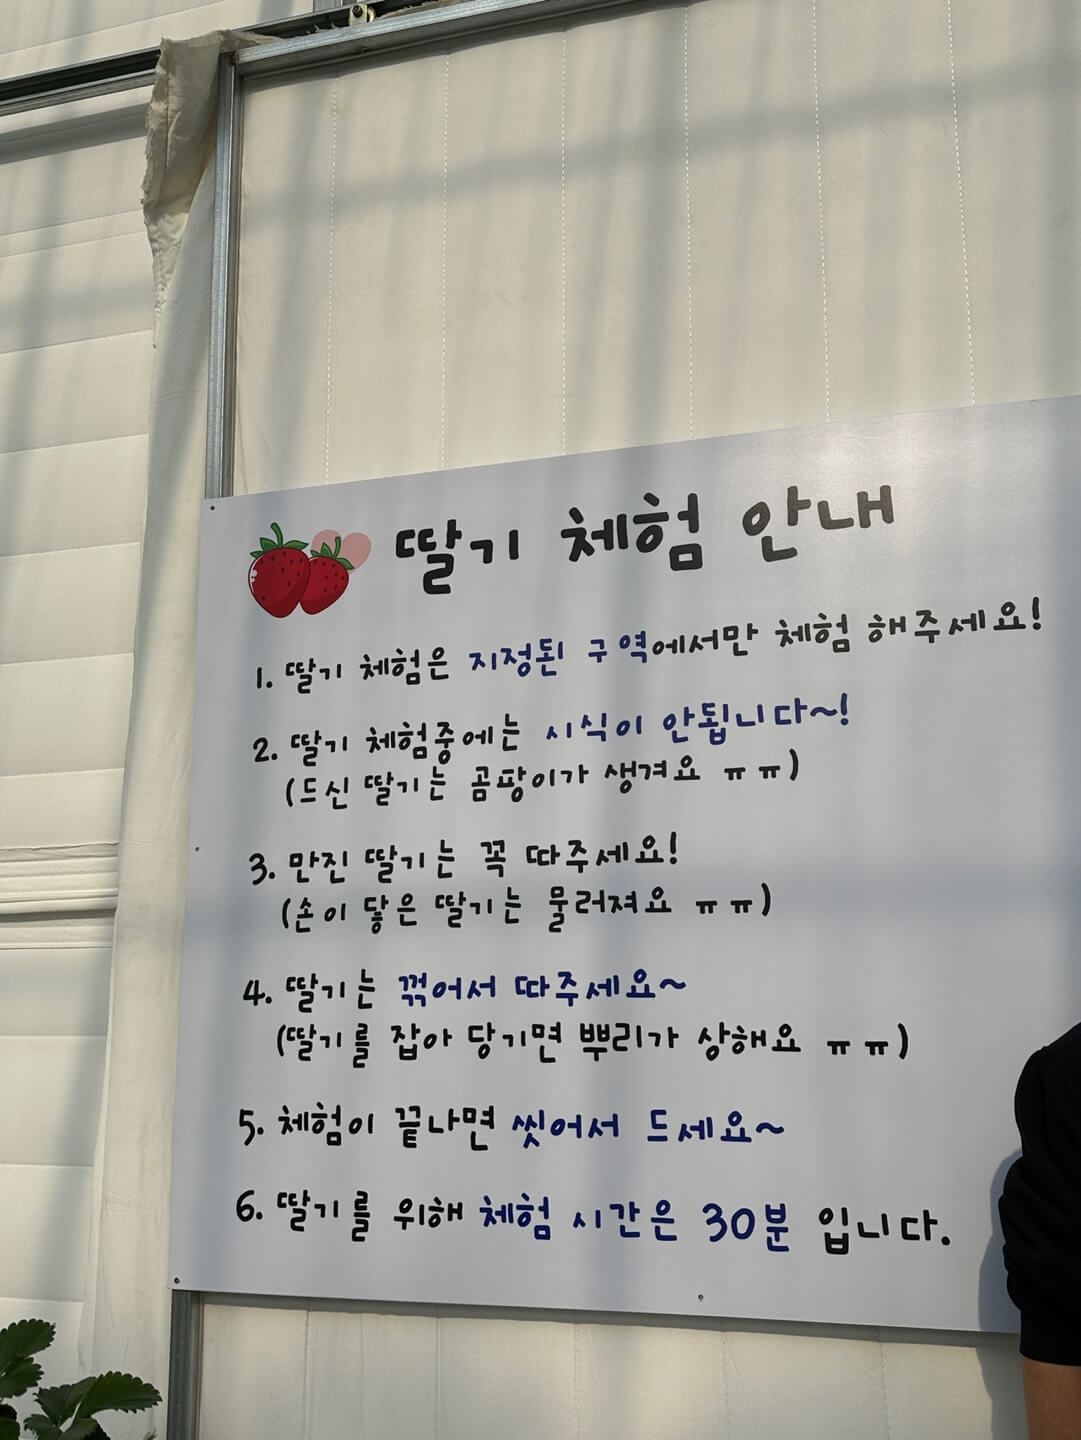 딸기 체험 안내
1. 딸기 체험은 지정된 구역에서만 체험 해주세요!
2. 딸기 체험중에는 시식이 안됩니다~!
(드신 딸기는 곰팡이가 생겨요 ㅠㅠ)
3. 만진 딸기는 꼭 따주세요!
(손이 닿은 딸기는 물러져요 ㅠㅠ)
4. 딸기는 꺾어서 따주세요~
(딸기를 잡아 당기면 뿌리가 상해요 ㅠㅠ)
5. 체험이 끝나면 씻어서 드세요~
6. 딸기를 위해 체험 시간은 30분 입니다.